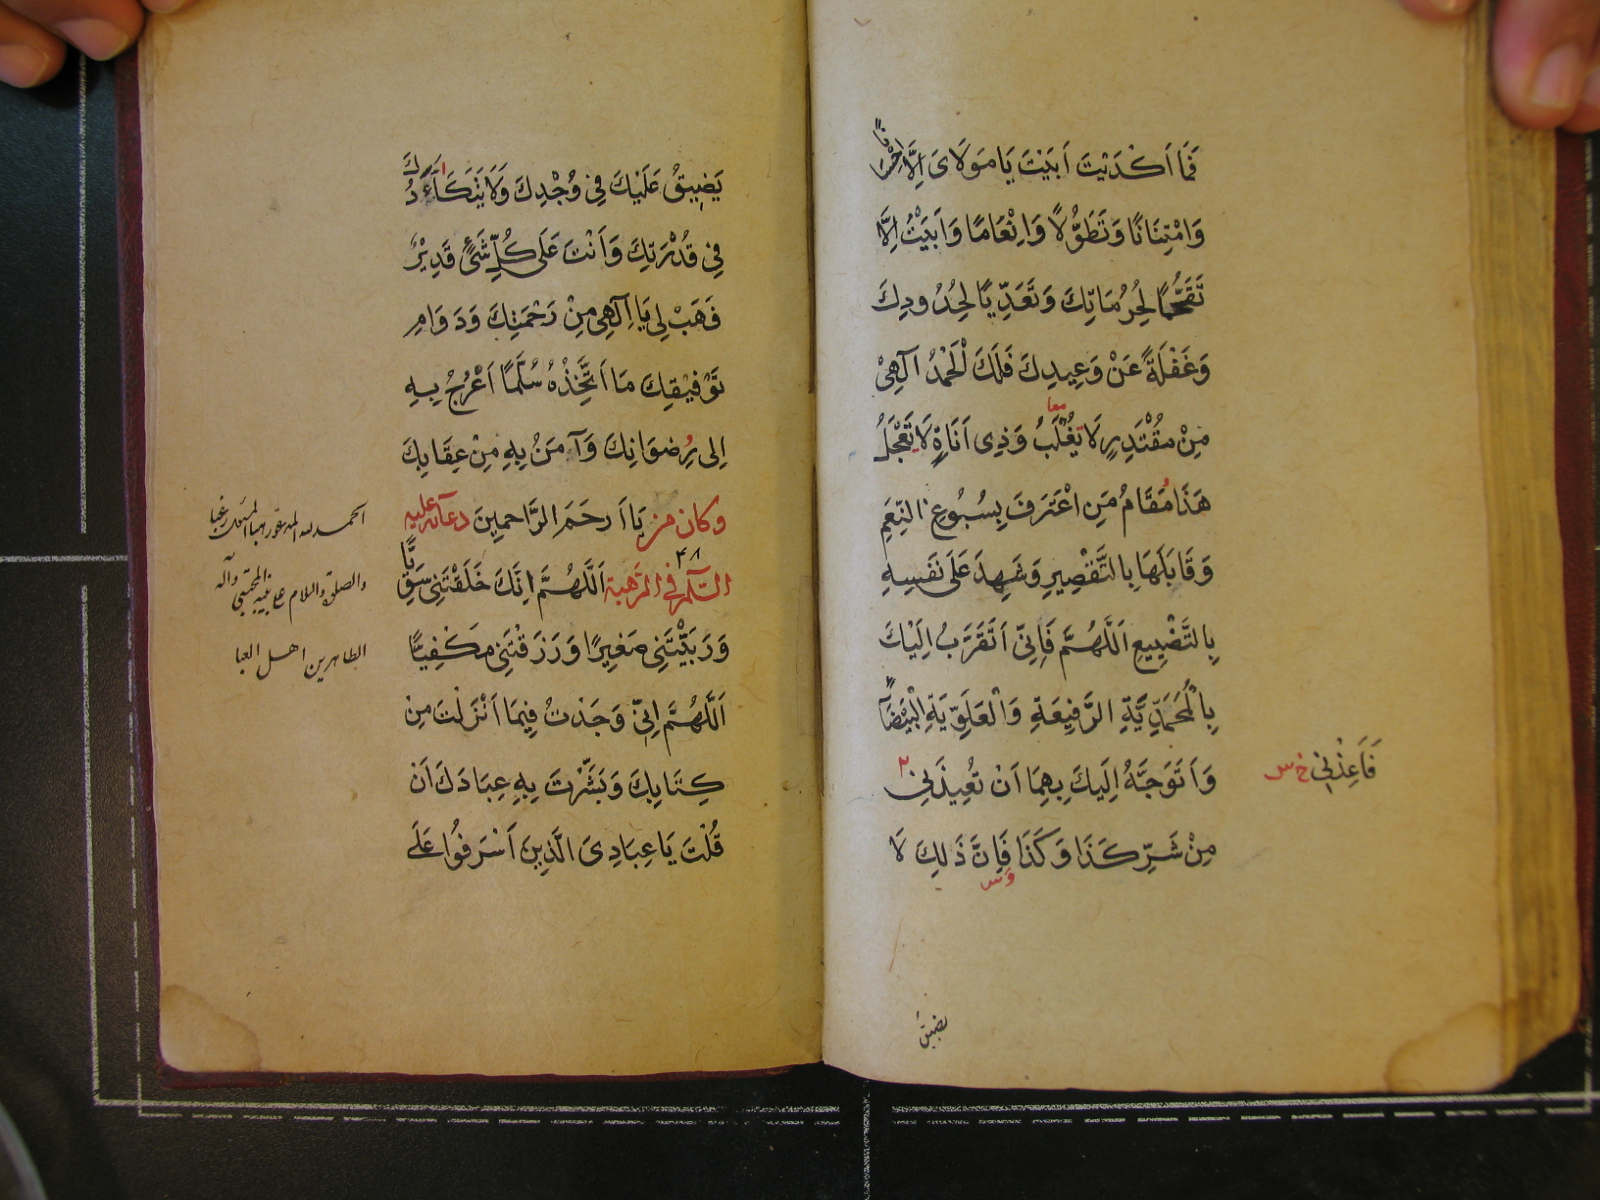 فَمَا اَكْدَيْتَ اَبَيْتَ يَا مَوْلَاىَ اِلَّا اِحْسَانًا
وَامْتِنَانًا وَتَطَوُّلًا وَاِنْعَامًا وَاَبَيْتُ اِلَّا
تَقَحُّمًا لِحُرُمَاتِكَ وَتَعَدِّيًا لِحُدُودِكَ
وَغَفْلَةً عَنْ وَعِيدِكَ فَلَكَ الْحَمْدُ اِلٰهِىْ
معا
مِنْ مُقْتَدِرٍ لَا يُغْلَبُ وَذِى اَنَاةٍ لَا تَعْجَلُ
هَذَا مَُقَامُ مَنِ اعْتَرَفَ بِسُبُوغِ النِّعَمِ
وَقَابَلَهَا بِالتَّقْصِيرِ وَشَهِدَ عَلَى نَفْسِهِ
بِالتَّضْيِيعِ اَللّهُمَّ فَاِنِّى اَتَقَرَّبُ اِلَيْكَ
بِالْمُحَمَّدِيَّةِ الرَّفِيعَةِ وَالْعَلَوِيَّةِ الْبَيْضَآءِ
وَاَتَوَجَّهُ اِلَيكَ بِهِمَا اَنْ تُعِيذَنِى
فَاَعِذْنِى خ س
مِنْ شَرِّ كَذَا وَكَذَا فَاِنَّ ذَلِكَ لَا
يضيق
يَضِيقُ عَلَيْكَ فِى وُجْدِكَ وَلَا يَتَكَاَّءَدُكَ
فِى قُدْرَتِكَ وَاَنْتَ عَلَى كُلِّ شَىْءٍ قَدِيْرٌ
فَهَبْ لِى يَا اِلٰهِى مِنْ رَحْمَتِكَ وَدَوَامِ
تَوْفِيْقِكَ مَا اَتَّخِذُهُ سُلَّمًا اَعْرُجُ بِهِ
اِلى رِضوَانِكَ وَآمَنُ بِهِ مِنْ عِقَابِكَ
يَا اَرحَمَ الرَّاحمِينَ وكان من دعائه عليه
۴۸
السّلام فى الرّهبة اَللّهُمَّ اِنَّكَ خَلَقْتَنِى سَوِيًّا
وَرَبَّيْتَنِى صَغِيرًا وَرَزَقْتَنِى مَكْفِيًّا
اَللّهُمَّ اِنِّى وَجَدْتُ فِيمَا اَنْزَلْتَ مِنْ
كِتَابِكَ وَبَشَّرْتَ بِهِ عِبَادَكَ اَنْ
قُلْتَ يَا عِبَادِىَ الَّذِينَ اَسْرَفُوا عَلَى
الحمد لله
والصلوة والسلام على نبيه المجتبى وآله
الطاهرين اهل العبا